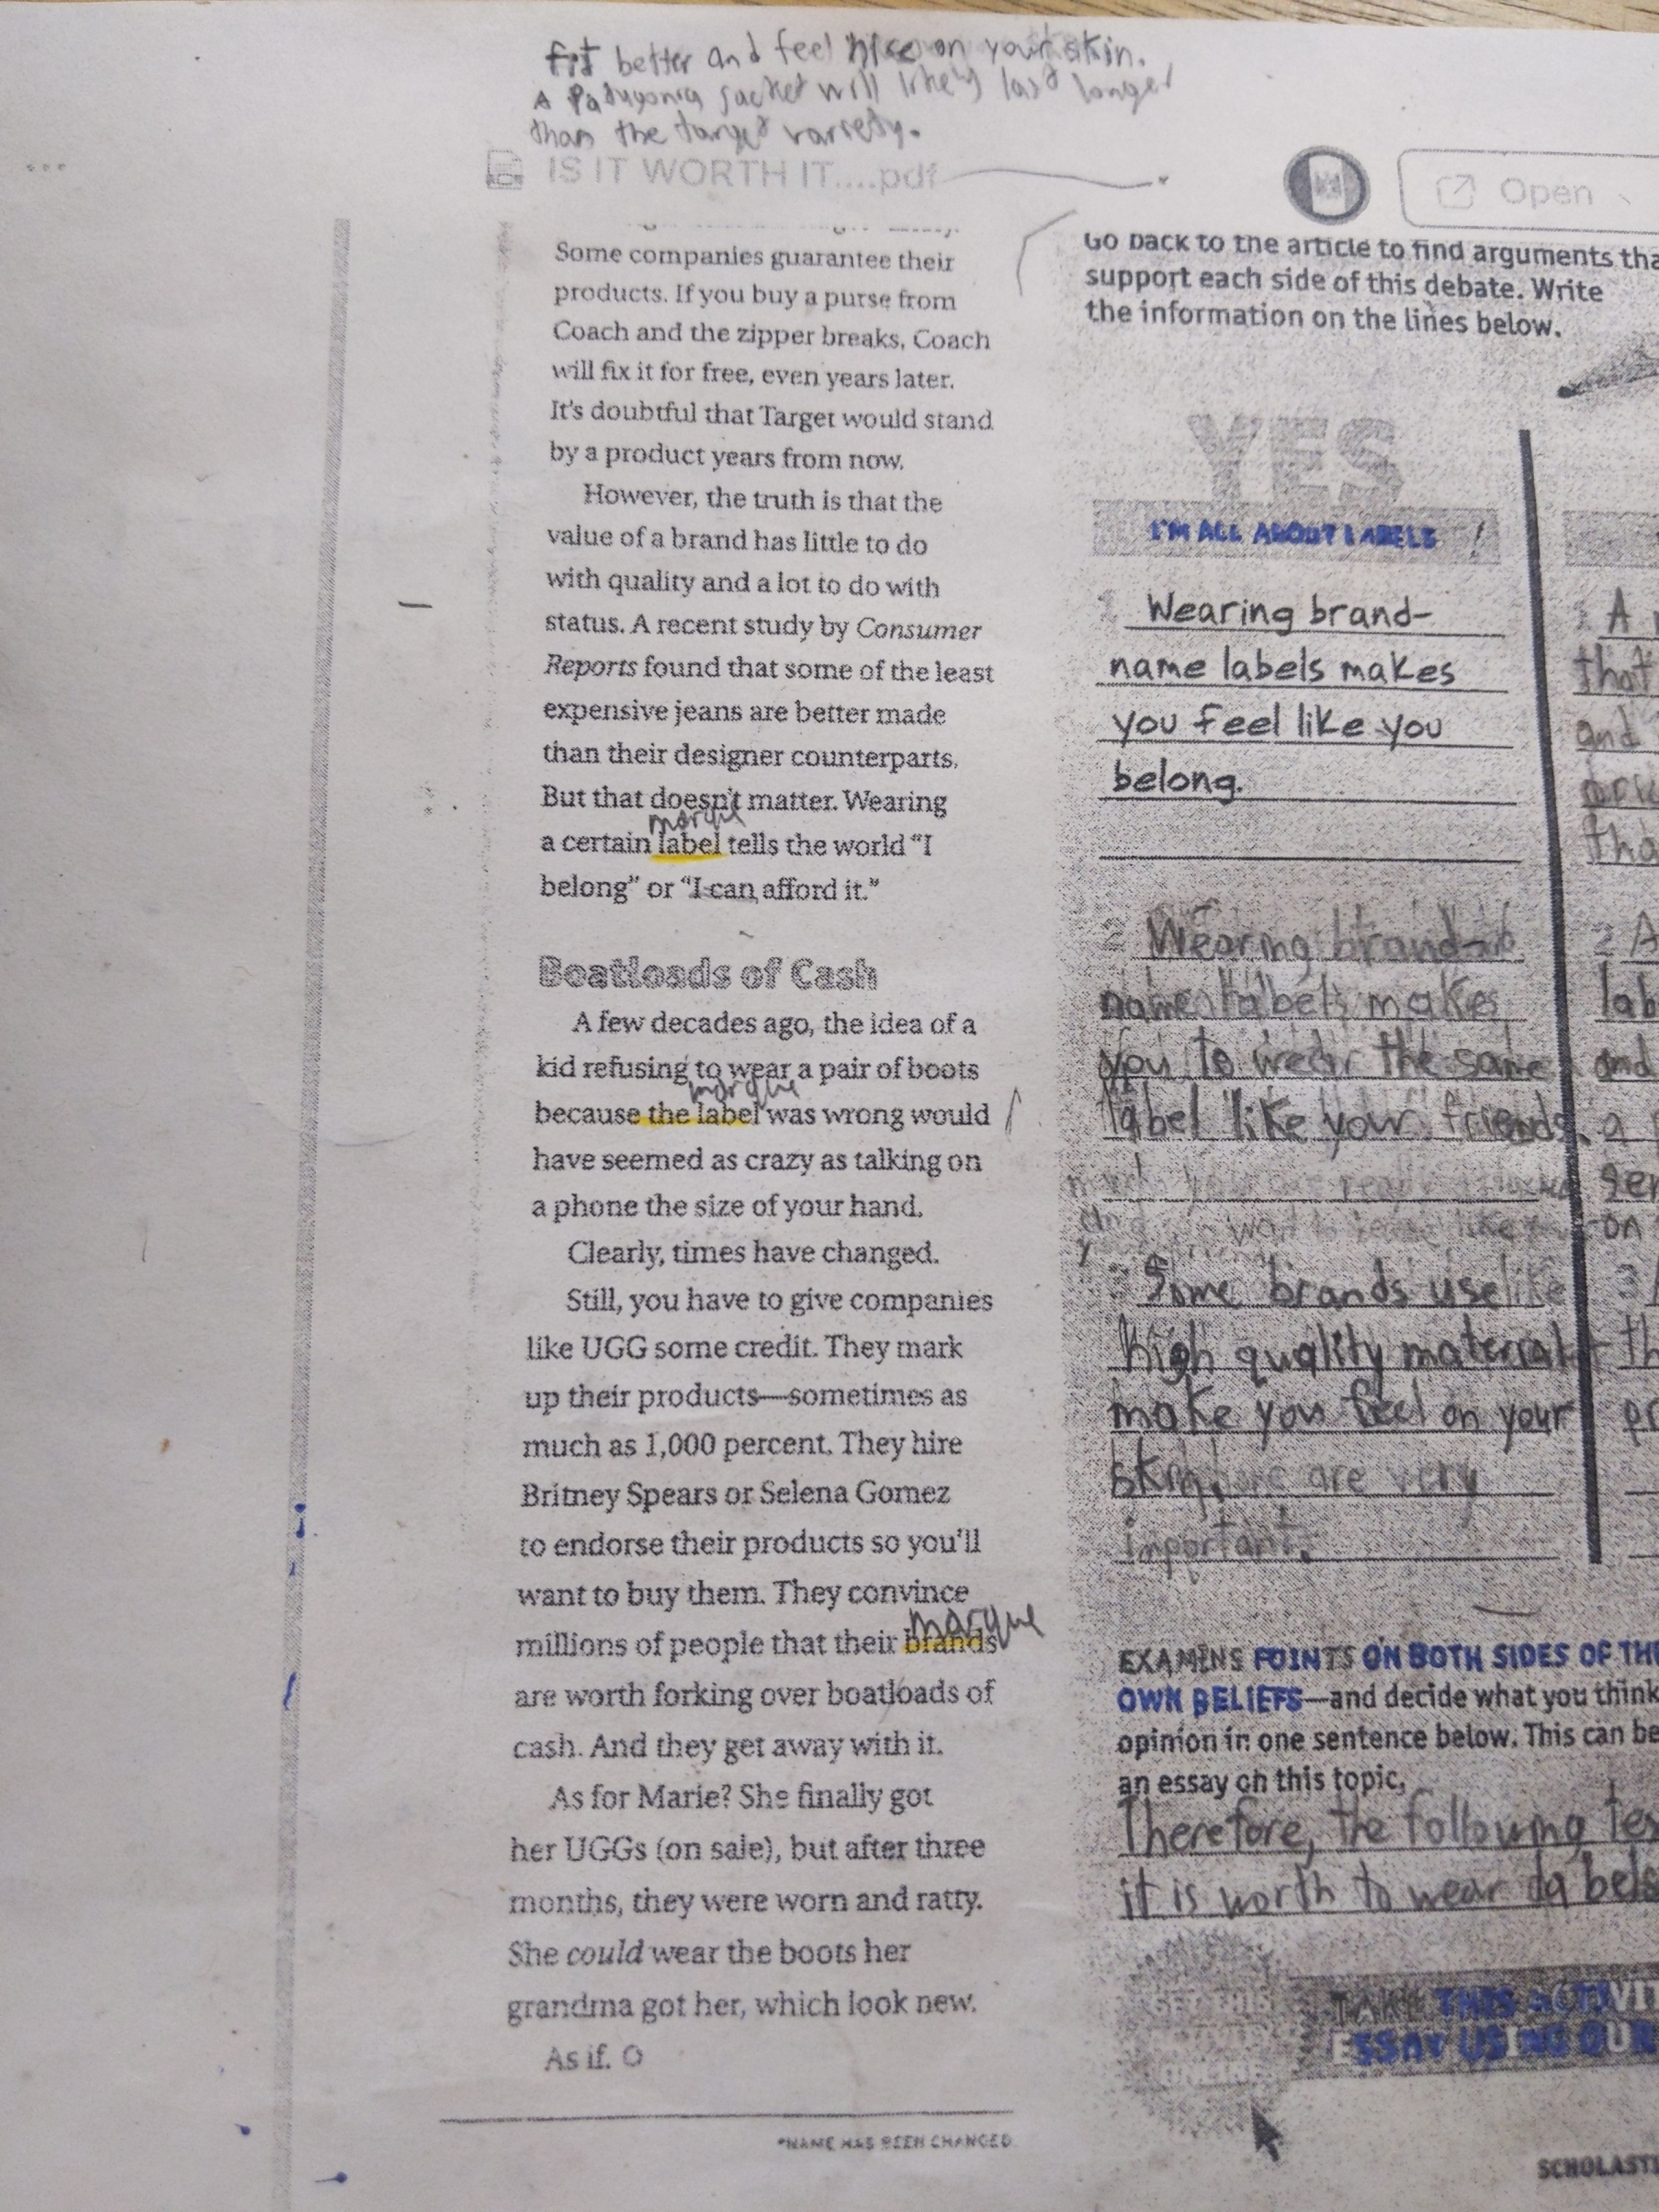 fit better and feel nice on your skin.
A Patugonia jacket will likely last longer
than the target variety.
IS IT WORTH IT....pdf
Open
Some companies guarantee their
products. If you buy a purse from
Coach and the zipper breaks, Coach
will fix it for free, even years later.
It's doubtful that Target would stand
by a product years from now.
However, the truth is that the
value of a brand has little to do
with quality and a lot to do with
status. A recent study by Consumer
Reports found that some of the least
expensive jeans are better made
than their designer counterparts.
But that doesn't matter. Wearing
marque
a certain label tells the world “I
belong” or “I can afford it.”
Boatloads of Cash
A few decades ago, the idea of a
kid refusing to wear a pair of boots
marque
because the label was wrong would
have seemed as crazy as talking on
a phone the size of your hand.
Clearly, times have changed.
Still, you have to give companies
like UGG some credit. They mark
up their products—sometimes as
much as 1,000 percent. They hire
Britney Spears or Selena Gomez
to endorse their products so you'll
want to buy them. They convince
marque
millions of people that their brands
are worth forking over boatloads of
cash. And they get away with it.
As for Marie? She finally got
her UGGs (on sale), but after three
months, they were worn and ratty.
She could wear the boots her
grandma got her, which look new.
As if.
*NAME HAS BEEN CHANGED
Go back to the article to find arguments tha
support each side of this debate. Write
the information on the lines below.
YES
I'M ALL ABOUT LABELS!
1 Wearing brand-
name labels makes
you feel like you
belong.
2 Wearing brand-
name labels makes
you to wear the same
label like your friends.
3 Some brands use
high quality material
make you feel on your
skin, are very
important.
1 A
that
and
tha
2 A
lab
and
a
ser
on
3
th
pr
EXAMINE POINTS ON BOTH SIDES OF THE
OWN BELIEFS—and decide what you think
opinion in one sentence below. This can be
an essay on this topic.
Therefore, the following tex
it is worth to wear labels
TAKE THIS ACTIVIT
ESSAY USING OUR
SCHOLASTI